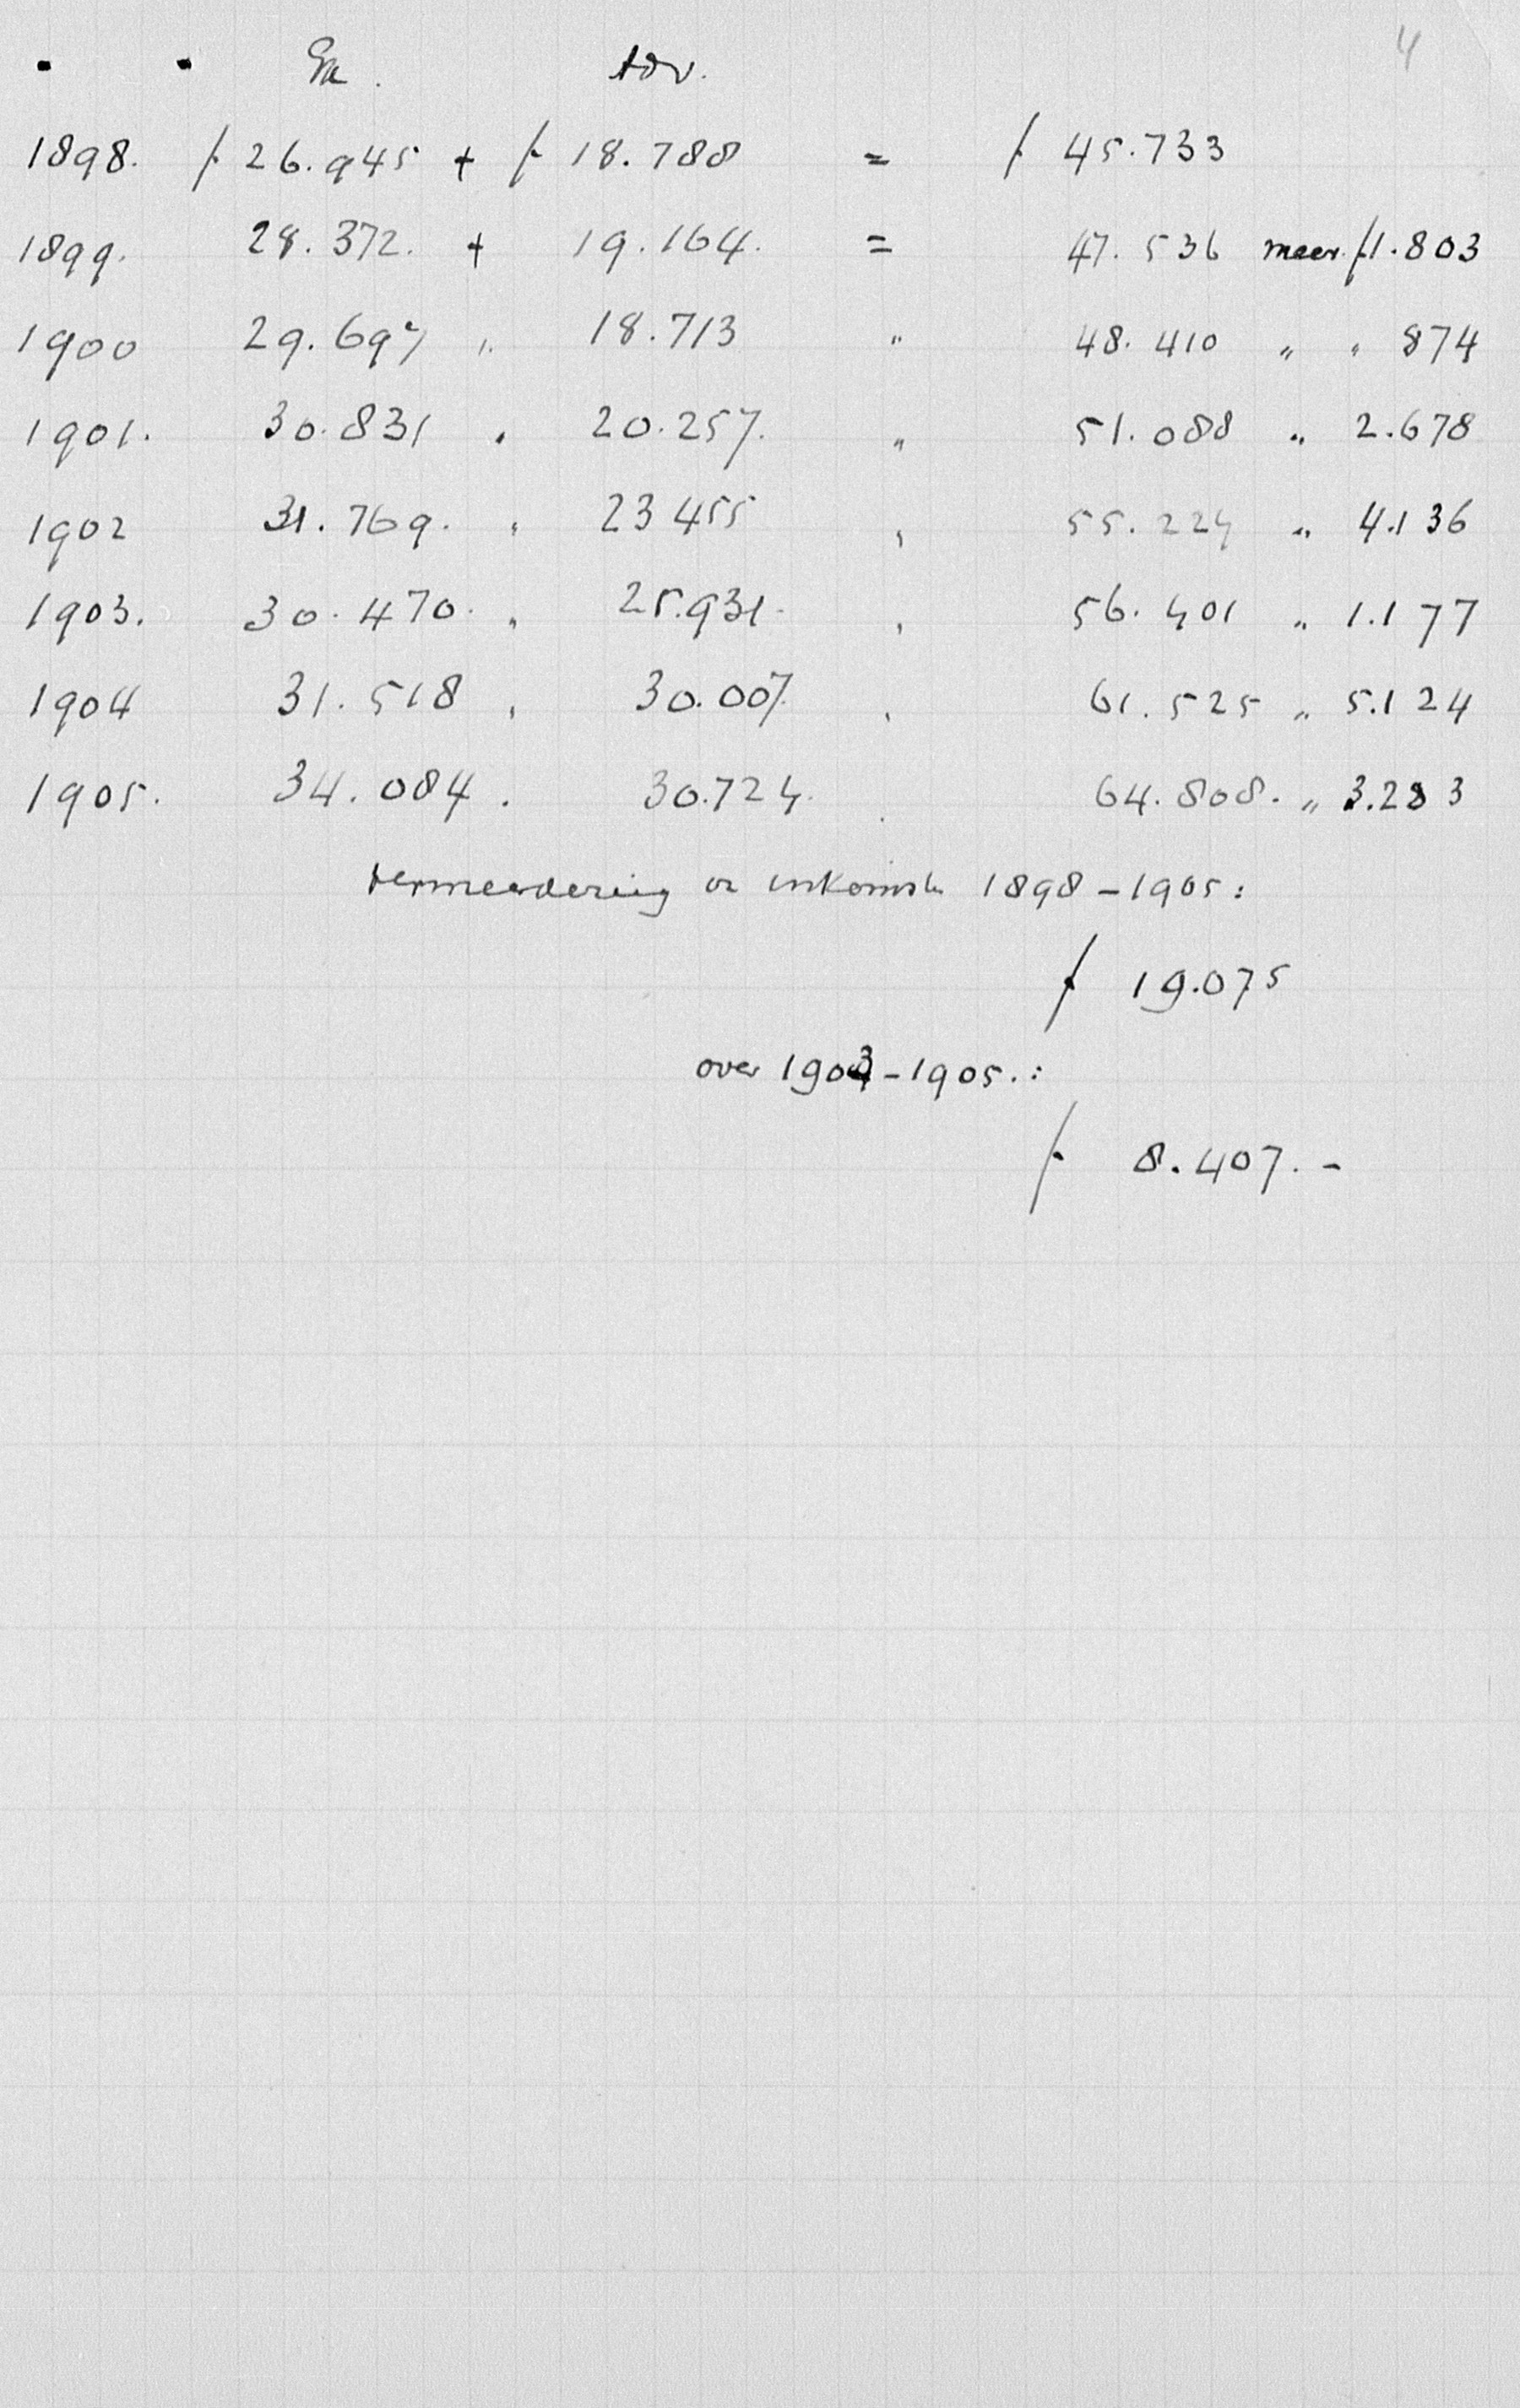 4
adv.
1898. f 26.945 + f 18.788 = f 45.733
1899. 28.372. + 19.164. = 47.536 meer f 1.803
1900 29.697 " 18.713 " 48.410 " " 874
1901. 30.831 " 20.257. " 51.088 " 2.678
1902 31.769. " 23455 " 55.224 " 4.136
1903. 30.470. " 25.931. " 56.401 " 1.177
1904 31.518 " 30.007. " 61.525 " 5.124
1905. 34.084 . 30.724. . 64.808. " 3.283
vermeerdering inkomsten 1898-1905:
f 19.075
over 1903-1905.:
f 8.407.-